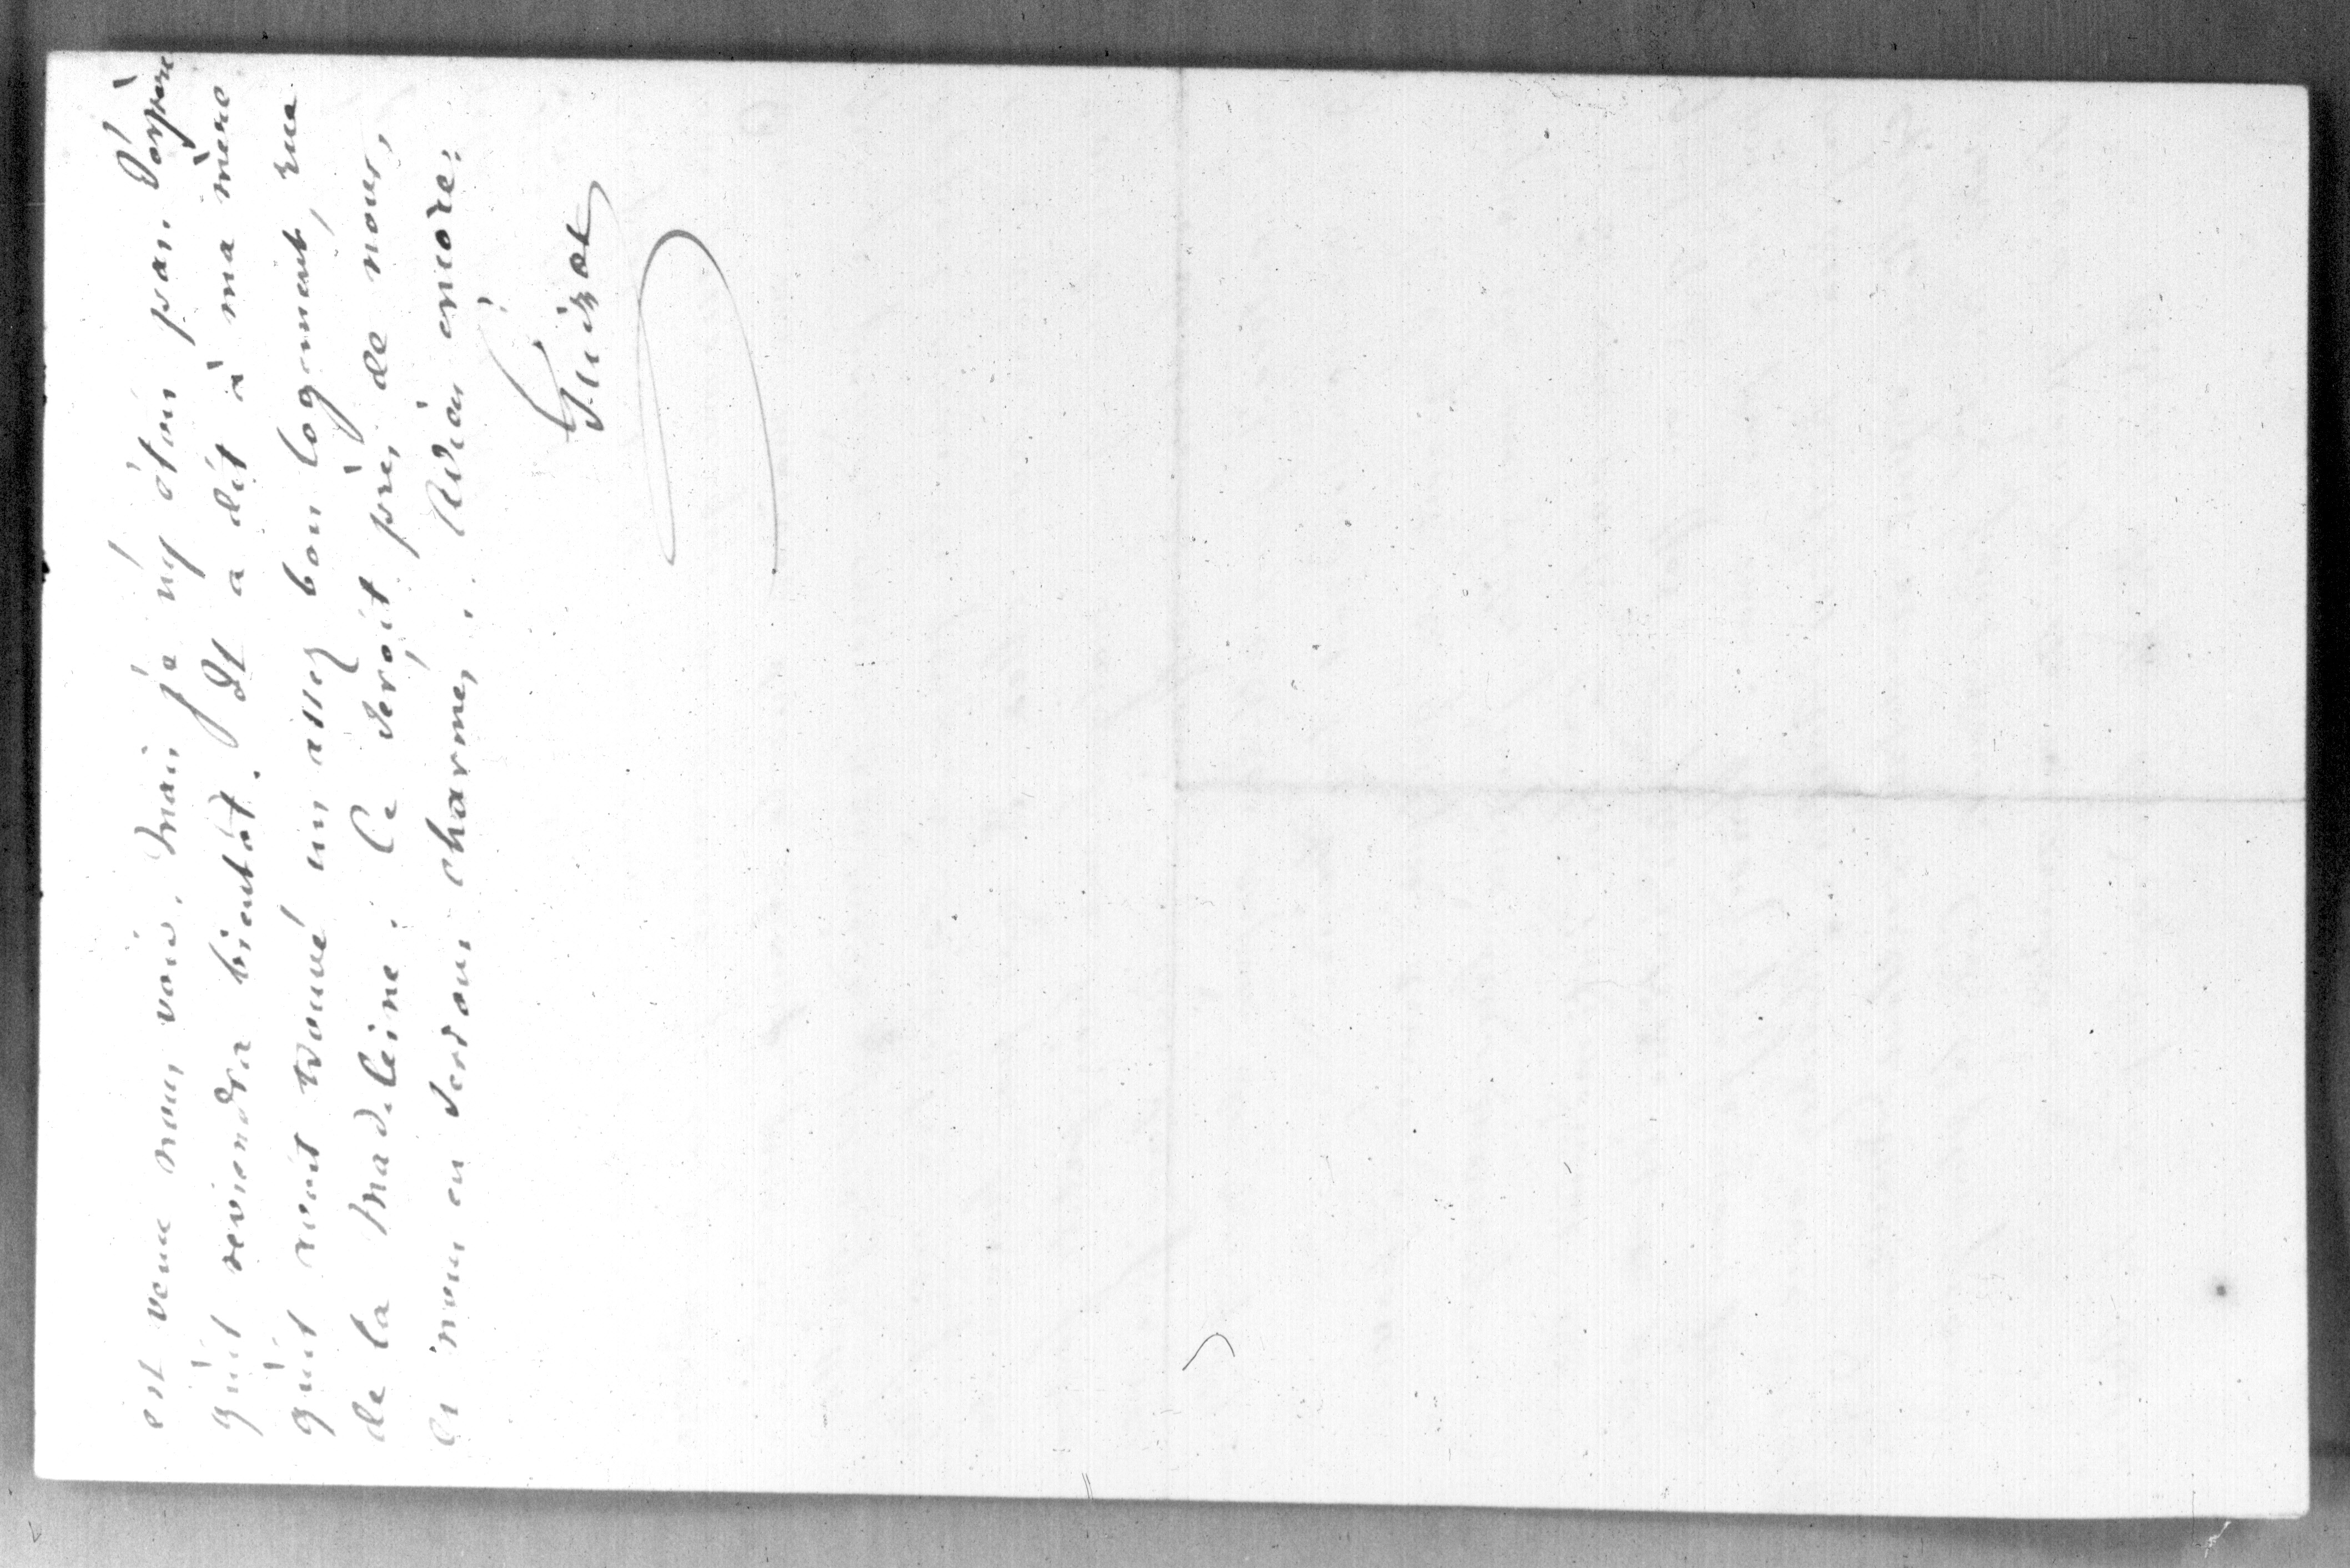 est venu nous voir. Mais je n'y étois pas. J'espère
qu'il reviendra bientôt. Il a dit à ma mère
qu'il avoit trouvé un assez bon logement, rue
de la Madeleine. Ce seroit près de nous,
et nous en serions charmés. Adieu encore.
Guizot